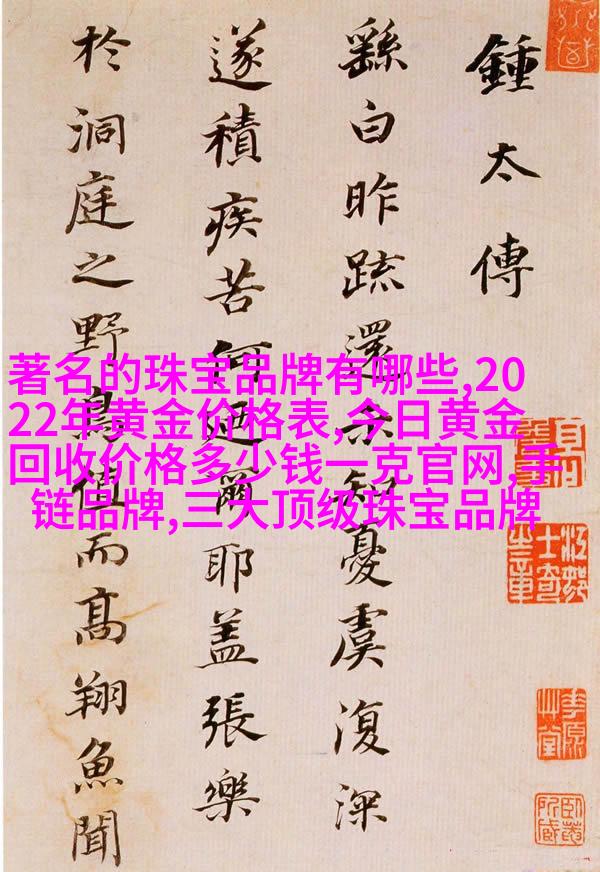 鍾太傅
繇白昨疏還示知憂虞復深
遂積疾苦何迺爾耶蓋張樂
於洞庭之野鳥值而高翔魚聞
著名的珠宝品牌有哪些,20
22年黄金价格表,今日黄金
回收价格多少钱一克官网,手
链品牌,三大顶级珠宝品牌